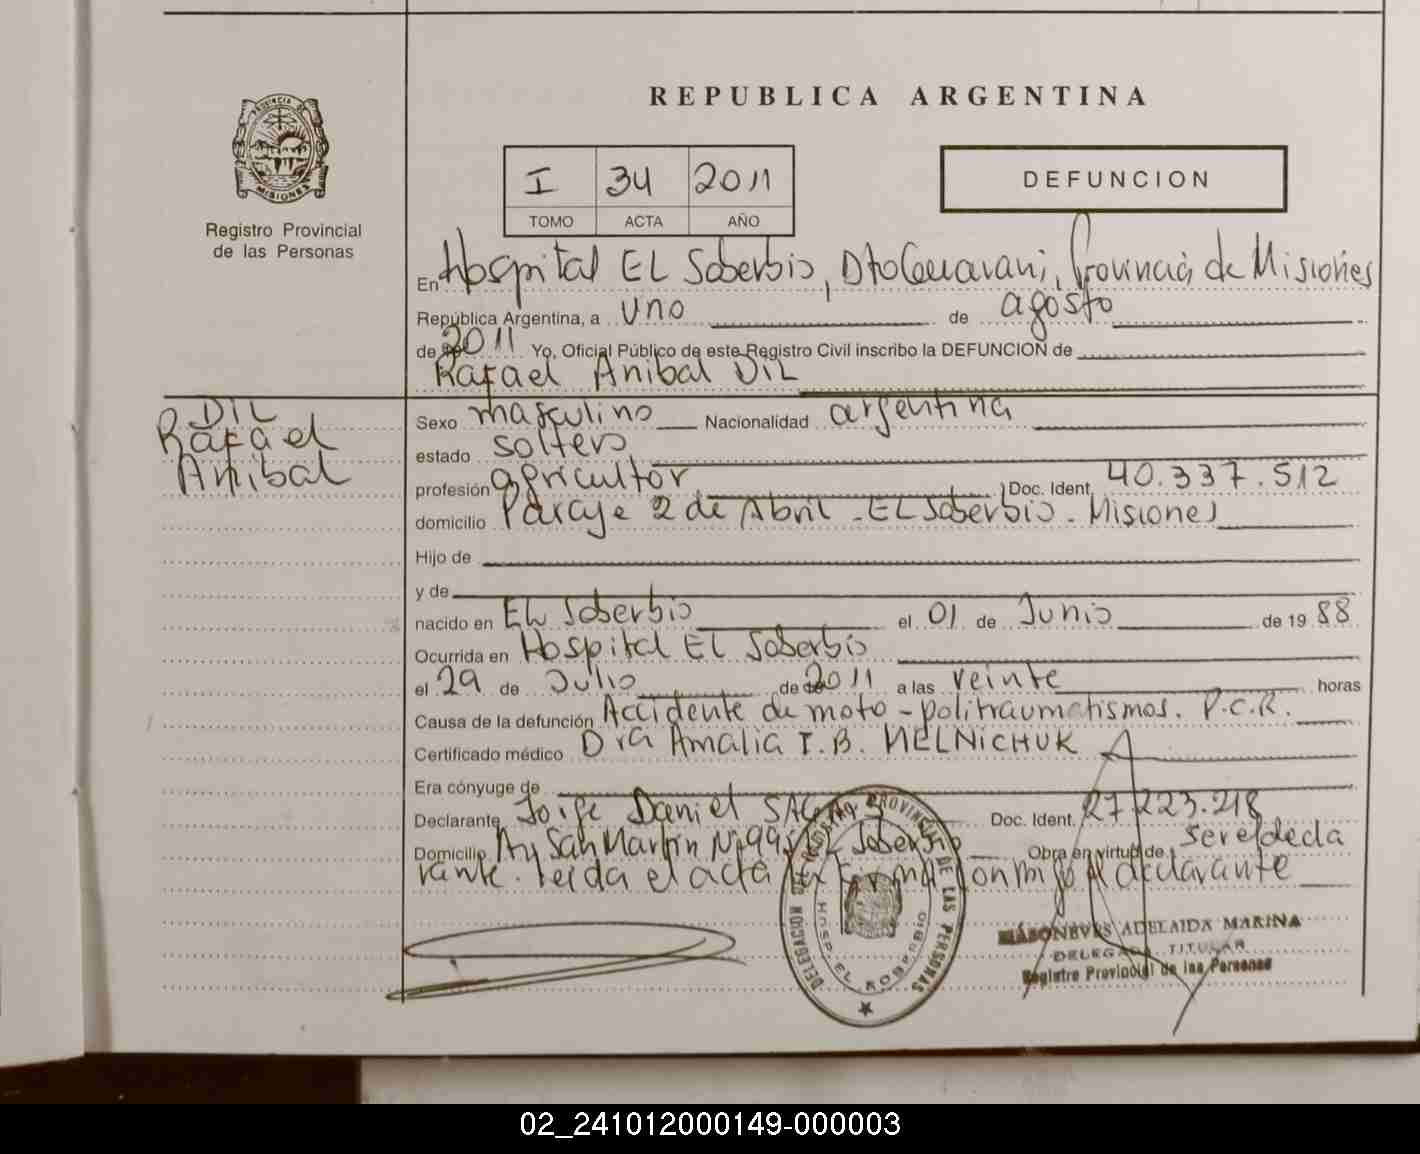 REPUBLICA ARGENTINA
PROVINCIA DE
MISIONES
Registro Provincial
de las Personas
I 34 2011
TOMO ACTA AÑO
DEFUNCION
En Hospital EL Soberbio, Dto Guarani, Provincia de Misiones
República Argentina, a uno de agosto
de 2011 Yo, Oficial Público de este Registro Civil inscribo la DEFUNCION de
Rafael Anibal DIL
DIL
Rafael
Anibal
Sexo masculino Nacionalidad argentina
estado soltero
profesión agricultor Doc. Ident. 40.337.512
domicilio Paraje 2 de Abril - EL Soberbio - Misiones
Hijo de
y de
nacido en EL Soberbio el 01 de Junio de 19 88
Ocurrida en Hospital EL Soberbio
el 29 de Julio de 2011 a las veinte horas
Causa de la defunción Accidente de moto - politraumatismos. P.C.R.
Certificado médico Dra Amalia I. B. MELNICHUK
Era cónyuge de
Declarante Jorge Daniel Doc. Ident. 27.223.218
Domicilio Av San Martin Nº 995 EL Soberbio Obra en virtud de ser el decla
rante. Leida el acta la firma conmigo el declarante
DELEGACION REGISTRO PROVINCIAL DE LAS PERSONAS
HOSP. EL SOBERBIO
ADELAIDA MARINA
DELEGADA TITULAR
Registro Provincial de las Personas
02_241012000149-000003